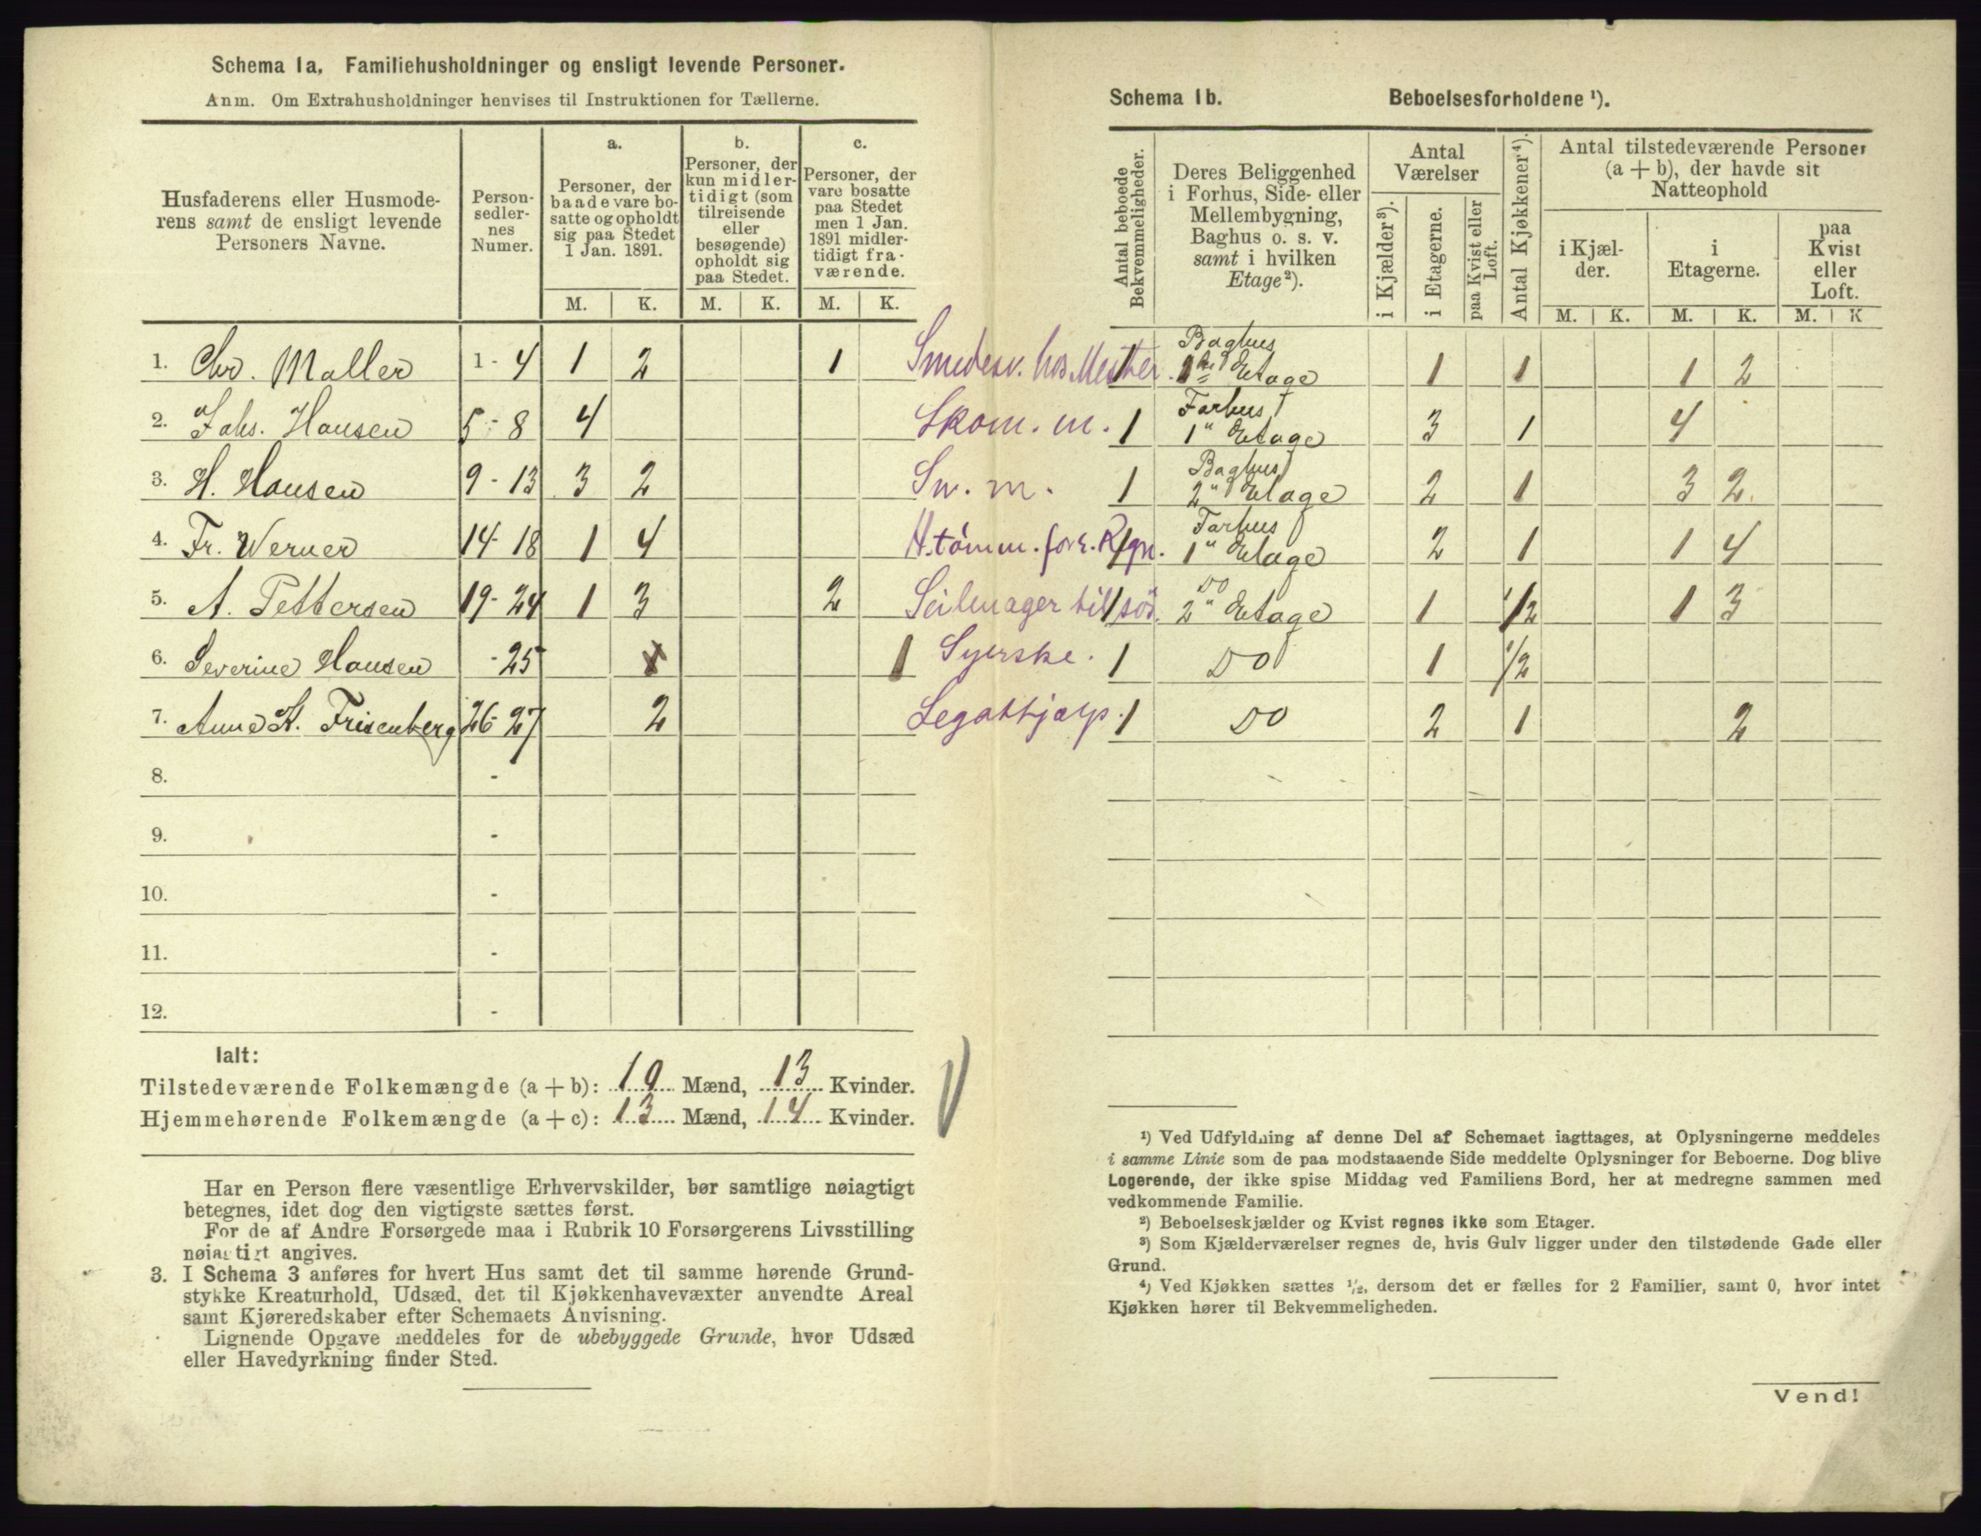 Schema 1a. Familiehusholdninger og ensligt levende Personer.
Anm. Om Extrahusholdninger henvises til Instruktionen for Tællerne.
Husfaderens eller Husmode-
rens samt de ensligt levende
Personers Navne.
Person-
sedler-
nes
Numer.
a.
Personer, der
baade vare bo-
satte og opholdt
sig paa Stedet
1 Jan. 1891.
b.
Personer, der
kun midler-
tidigt (som
tilreisende
eller
besøgende)
opholdt sig
paa Stedet.
c.
Personer, der
vare bosatte
paa Stedet
men 1 Jan.
1891 midler-
tidigt fra-
værende.
M. K. M. K. M. K.
1. Chr. Møller 1 - 4 1 2 1 Smedesv. hos Mester.
2. Johs. Hansen 5 - 8 4 Skom. m.
3. H. Hansen 9 - 13 3 2 Sn. m.
4. Fr. Werner 14 - 18 1 4 H.tømm. for e. Regn.
5. A. Pettersen 19 - 24 1 3 2 Seilmager til søs.
6. Severine Hansen - 25 1 Syerske.
7. Anne K. Frisenberg 26 - 27 2 Legathjælp.
8. -
9. -
10. -
11. -
12. -
Ialt:
Tilstedeværende Folkemængde (a + b): 10 Mænd, 13 Kvinder.
Hjemmehørende Folkemængde (a + c): 13 Mænd, 14 Kvinder.
Har en Person flere væsentlige Erhvervskilder, bør samtlige nøiagtigt
betegnes, idet dog den vigtigste sættes først.
For de af Andre Forsørgede maa i Rubrik 10 Forsørgerens Livsstilling
nøiagtigt angives.
3. I Schema 3 anføres for hvert Hus samt det til samme hørende Grund-
stykke Kreaturhold, Udsæd, det til Kjøkkenhavevæxter anvendte Areal
samt Kjøreredskaber efter Schemaets Anvisning.
Lignende Opgave meddeles for de ubebyggede Grunde, hvor Udsæd
eller Havedyrkning finder Sted.
Schema 1b. Beboelsesforholdene ¹).
Antal beboede
Bekvemmeligheder.
Deres Beliggenhed
i Forhus, Side- eller
Mellembygning,
Baghus o. s. v.
samt i hvilken
Etage²).
Antal
Værelser
i Kjælder³).
i Etagerne.
paa Kvist eller
Loft.
Antal Kjøkkener⁴).
Antal tilstedeværende Personer
(a + b), der havde sit
Natteophold
i Kjæl-
der.
i
Etagerne.
paa
Kvist
eller
Loft.
M. K. M. K. M. K
1 Baghus
1ste Etage 1 1 1 2
1 Forhus
1" Etage 3 1 4
1 Baghus
2" Etage 2 1 3 2
1 Forhus
1" Etage 2 1 1 4
1 Do
2" Etage 1 1/2 1 3
1 Do 1 1/2
1 Do 2 1 2
¹) Ved Udfyldning af denne Del af Schemaet iagttages, at Oplysningerne meddeles
i samme Linie som de paa modstaaende Side meddelte Oplysninger for Beboerne. Dog blive
Logerende, der ikke spise Middag ved Familiens Bord, her at medregne sammen med
vedkommende Familie.
²) Beboelseskjælder og Kvist regnes ikke som Etager.
³) Som Kjælderværelser regnes de, hvis Gulv ligger under den tilstødende Gade eller
Grund.
⁴) Ved Kjøkken sættes ½, dersom det er fælles for 2 Familier, samt 0, hvor intet
Kjøkken hører til Bekvemmeligheden.
Vend!